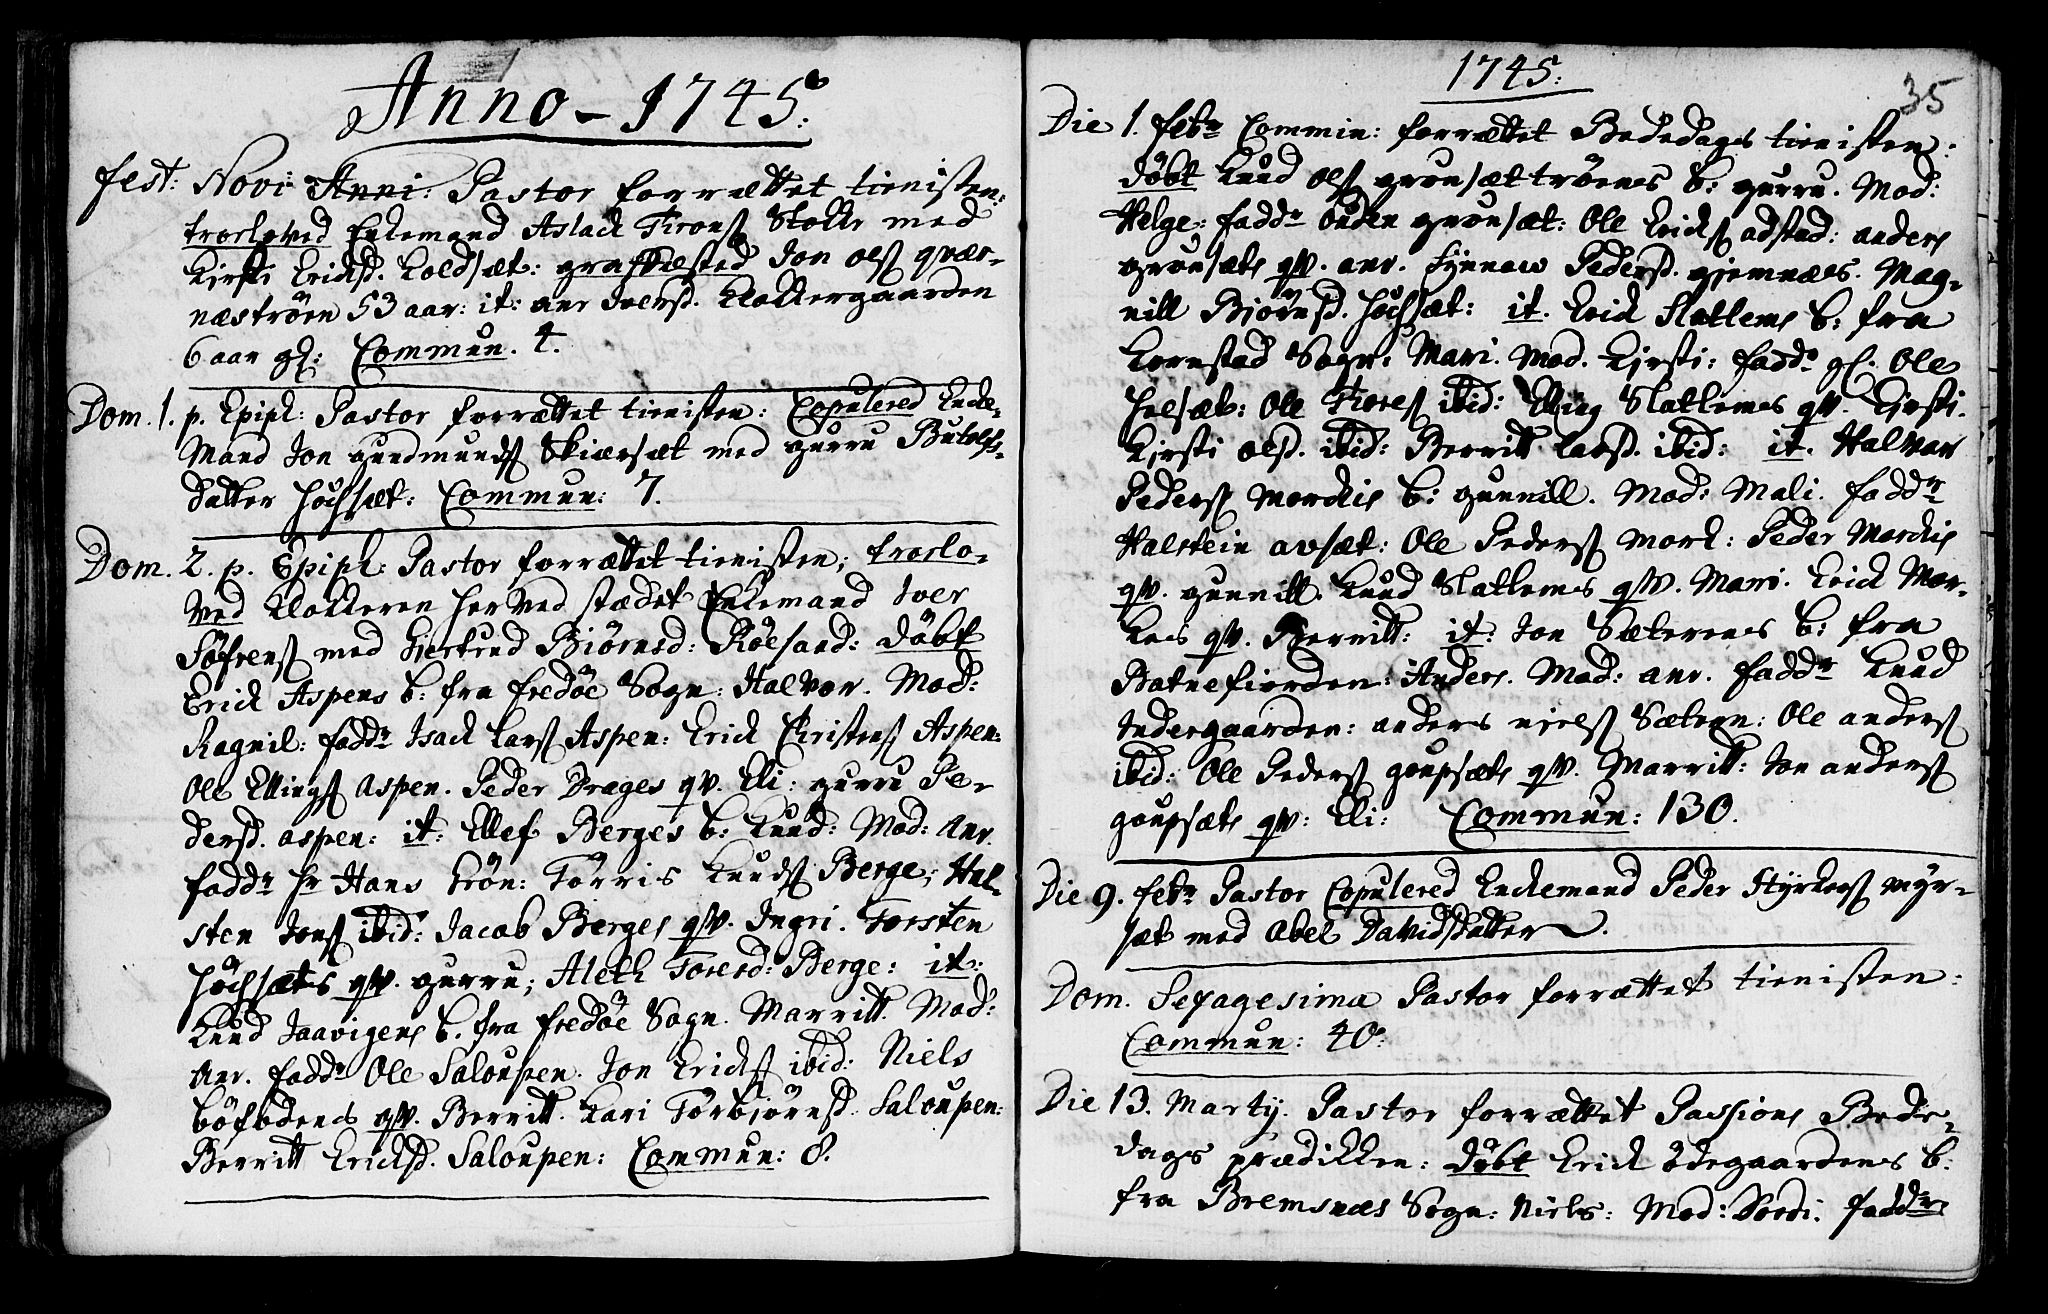 Anno - 1745:
Fest: Novi: Anni: Pastor forrettet tienisten:
troeloved Enkemand Aslack Tron∫ Stokke med
Kirsti Ericksd. Koldsæt: graffæsted Jon Ols∫ qvær-
næstrøen 53 aar: it: anr Iversd. Klokkergaarden
6 aar gl: Commun. 4.
Dom. 1. p. Epiph: Pastor forrættet tienisten: Copulered Encke-
Mand Jon Gudmunds∫ Skiærsæt med gurru Butolfs-
datter Høchsæt: Commun: 7.
Dom. 2. p. Epiph: Pastor forrættet tienisten; troelo-
ved Klokkeren her ved stædet Enkemand Iver
Søfrens∫ med Giertrud Biørnsd: Røesand: døbt
Erick Aspens b: fra Fredøe Sogn: Halvor. Mod:
Ragnil: fadd.r Isack Lars∫ Aspen: Erick Christens∫ Aspen:
Ole Ellings∫ Aspen. Peder Drages qv. Eli: gurru Pe-
dersd. aspen: it: Ellef Berges b: Knud: Mod: Anr.
fadd.r Hr Hans trøn: Tørris Knuds∫ Berge; Hal-
sten Jons∫ ibid: Jacob Berges qv. Ingri. Torsten
Høchsæts qv. gurru; Aleth Toresd: Berge: it:
Knud Jaavigens b. fra Fredøe Sogn. Marritt. Mod:
Anr. fadd.r Ole Saloupen. Jon Ericks∫ ibid: Niels
bøfodens qv. Berritt. Kari Torbiørnsd. Saloupen:
Berritt Ericksd. Saloupen: Commun: 8.
1745:
35
Die 1. feb.r Commin: forrættet Bededags tienisten:
døbt Knud Ols∫ grønsættrøens b: gurru. Mod:
Helge: fadd.r Ouden grønsæt: Ole Ericks∫ adstad: anders
grønsæts qv. anr. Synnow Pedersd. gjemnæs. Mag-
nill Biørnsd. Høchsæt: it. Erick Slatlems b: fra
Kornstad Sogn: Mari. Mod. Kirsti: fadd.r gl. Ole
Hoesæt: Ole Tores∫ ibid: Elling Slatlems qv. Kirsti.
Kirsti Olsd. ibid: Berritt Larsd. ibid: it. Halvor
Peders∫ Morckis b: gunnill. Mod: Mali. fadd.r
Halstein avsæt: Ole Peders∫ Mork: Peder Morckis
qv. gunnill. Knud Slatlems qv. Mari. Erick Mor-
kes qv. Berritt: it: Jon Sæterens b: fra
Batnefiorden: Anders. Mod: anr. fadd.r Knud
Indergaarden: anders niels∫ Sæteren: Ole anders∫
ibid: Ole Peders∫ goupsæts qv. Marritt: Jon anders∫
goupsæts qv: Eli: Commun: 130.
Die 9. feb.r Pastor Copulered Enckemand Peder Styrkers∫ myr-
sæt med Abel Davidsdatter.
Dom. Sexagesima Pastor forrættet tienisten:
Commun: 40.
Die 13. Martij. Pastor forrættet Passions Bede-
dags prædikken: døbt Erick ødegaardens b:
fra Bremsnæs Sogn: Niels: Mod: Sordi. fadd.r